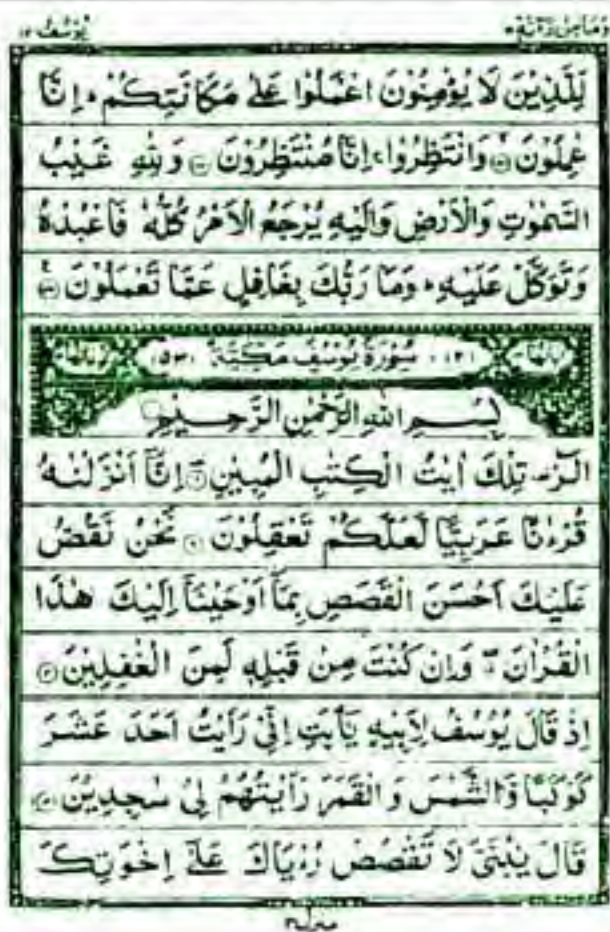 وَمَا مِنْ دَآبَّةٍ ١٢
يُوسُف ١٢
لِلَّذِيْنَ لَا يُؤْمِنُوْنَ اعْمَلُوْا عَلٰى مَكَانَتِكُمْ ؕ اِنَّا
عٰمِلُوْنَ ۙ وَانْتَظِرُوْا ۚ اِنَّا مُنْتَظِرُوْنَ ۝ وَلِلّٰهِ غَيْبُ
السَّمٰوٰتِ وَالْاَرْضِ وَاِلَيْهِ يُرْجَعُ الْاَمْرُ كُلُّهٗ فَاعْبُدْهُ
وَتَوَكَّلْ عَلَيْهِ ؕ وَمَا رَبُّكَ بِغَافِلٍ عَمَّا تَعْمَلُوْنَ ۝
(١٢) سُوْرَةُ يُوْسُفَ مَكِّيَّةٌ (٥٣)
بِسْمِ اللّٰهِ الرَّحْمٰنِ الرَّحِيْمِ
الٓرٰ ۚ تِلْكَ اٰيٰتُ الْكِتٰبِ الْمُبِيْنِ ۝ اِنَّاۤ اَنْزَلْنٰهُ
قُرْءٰنًا عَرَبِيًّا لَّعَلَّكُمْ تَعْقِلُوْنَ ۝ نَحْنُ نَقُصُّ
عَلَيْكَ اَحْسَنَ الْقَصَصِ بِمَاۤ اَوْحَيْنَاۤ اِلَيْكَ هٰذَا
الْقُرْاٰنَ ۖ وَاِنْ كُنْتَ مِنْ قَبْلِهٖ لَمِنَ الْغٰفِلِيْنَ ۝
اِذْ قَالَ يُوْسُفُ لِاَبِيْهِ يٰۤاَبَتِ اِنِّيْ رَاَيْتُ اَحَدَ عَشَرَ
كَوْكَبًا وَّالشَّمْسَ وَالْقَمَرَ رَاَيْتُهُمْ لِيْ سٰجِدِيْنَ ۝
قَالَ يٰبُنَيَّ لَا تَقْصُصْ رُءْيَاكَ عَلٰۤى اِخْوَتِكَ